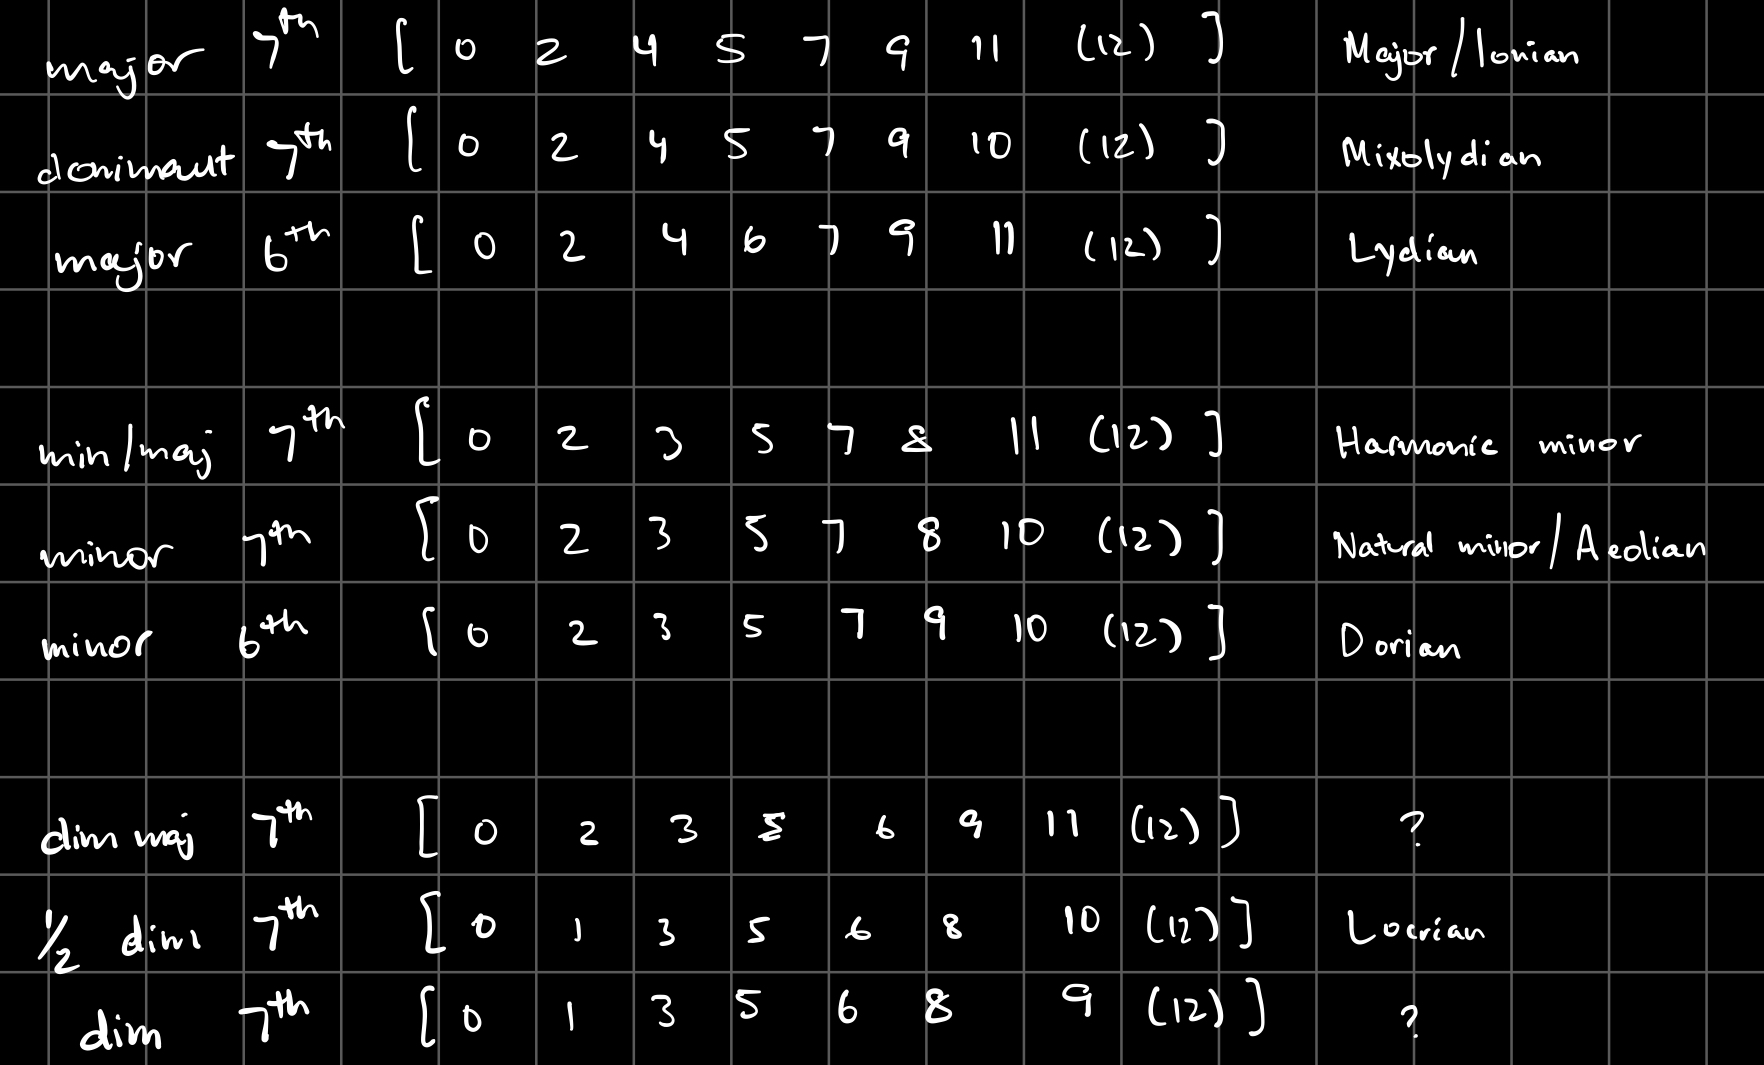 major 7th [ 0 2 4 5 7 9 11 (12) ] Major/Ionian
donimant 7th [ 0 2 4 5 7 9 10 (12) ] Mixolydian
major 6th [ 0 2 4 6 7 9 11 (12) ] Lydian
min/maj 7th [ 0 2 3 5 7 8 11 (12) ] Harmonic minor
minor 7th [ 0 2 3 5 7 8 10 (12) ] Natural minor/Aeolian
minor 6th [ 0 2 3 5 7 9 10 (12) ] Dorian
dim maj 7th [ 0 2 3 5 6 9 11 (12) ] ?
1/2 dim 7th [ 0 1 3 5 6 8 10 (12) ] Locrian
dim 7th [ 0 1 3 5 6 8 9 (12) ] ?